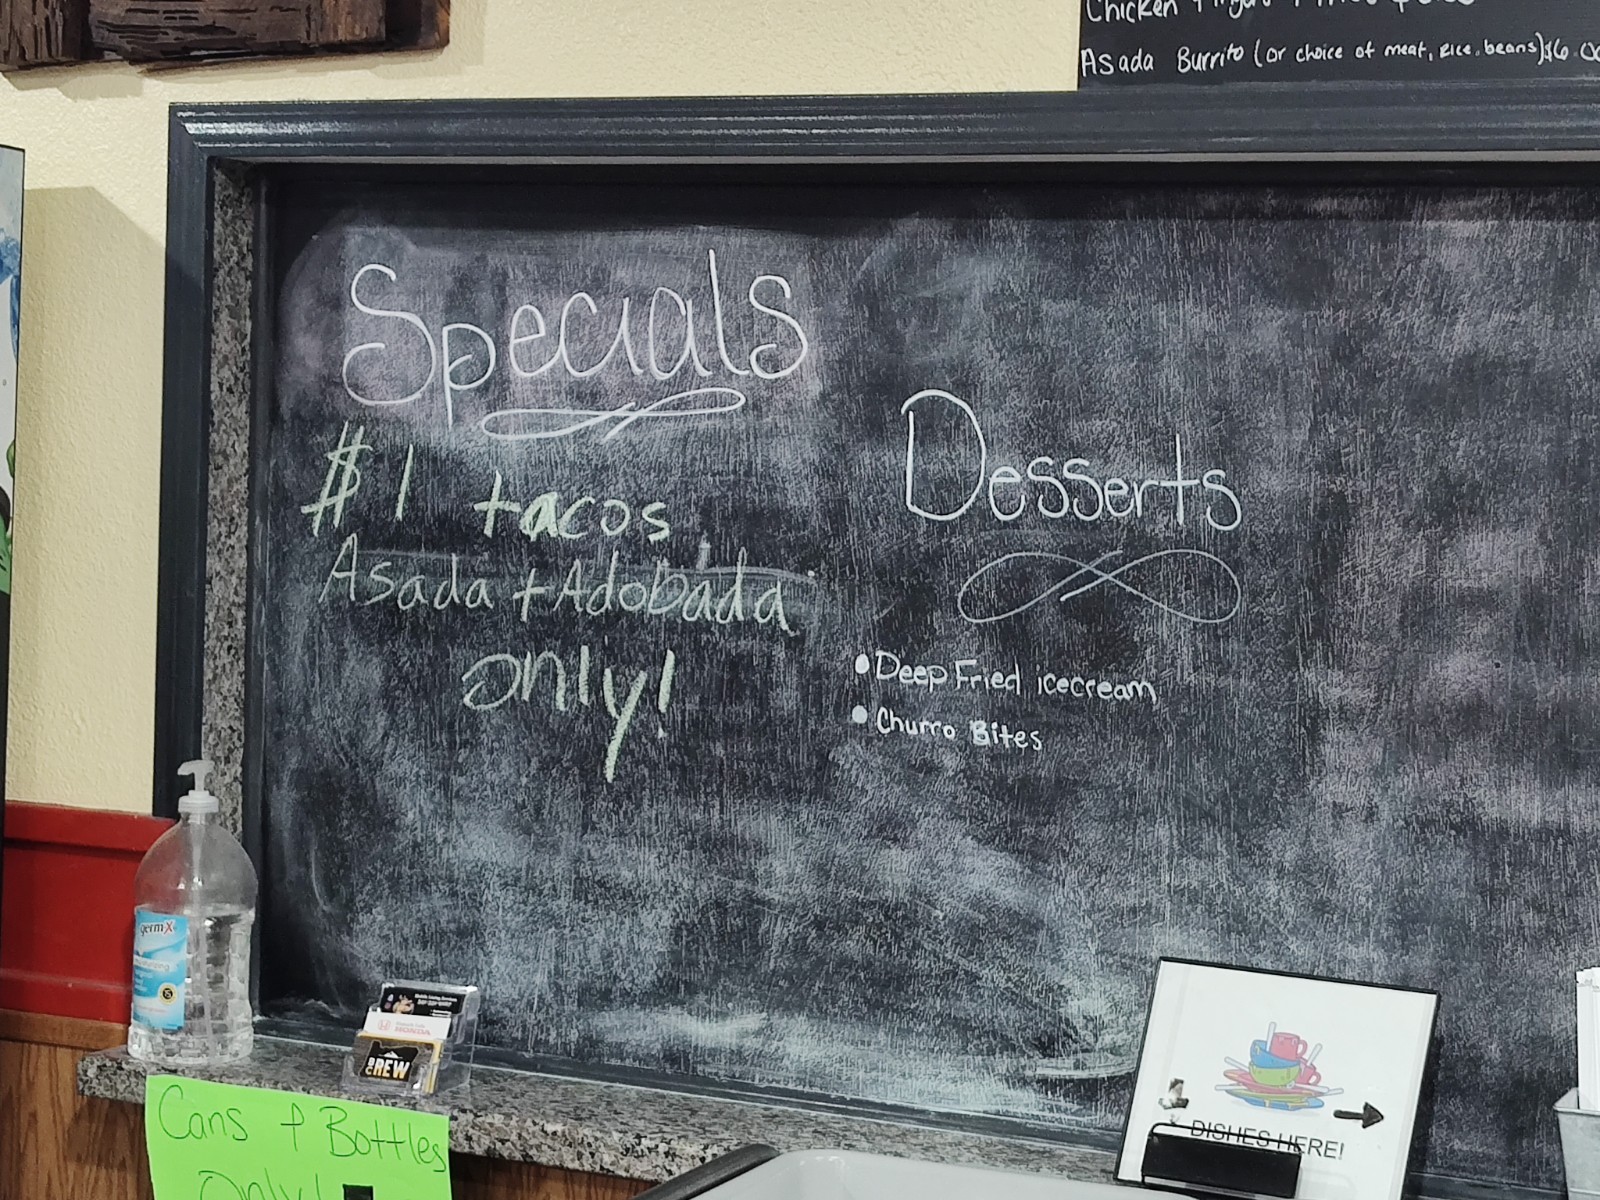 Chicken
Asada Burrito (or choice of meat, rice, beans) $6.00
Specials
$1 tacos
Asada + Adobada
only!
Desserts
• Deep Fried icecream
• Churro Bites
germX
HONDA
BREW
Cans + Bottles
Only!
DISHES HERE!